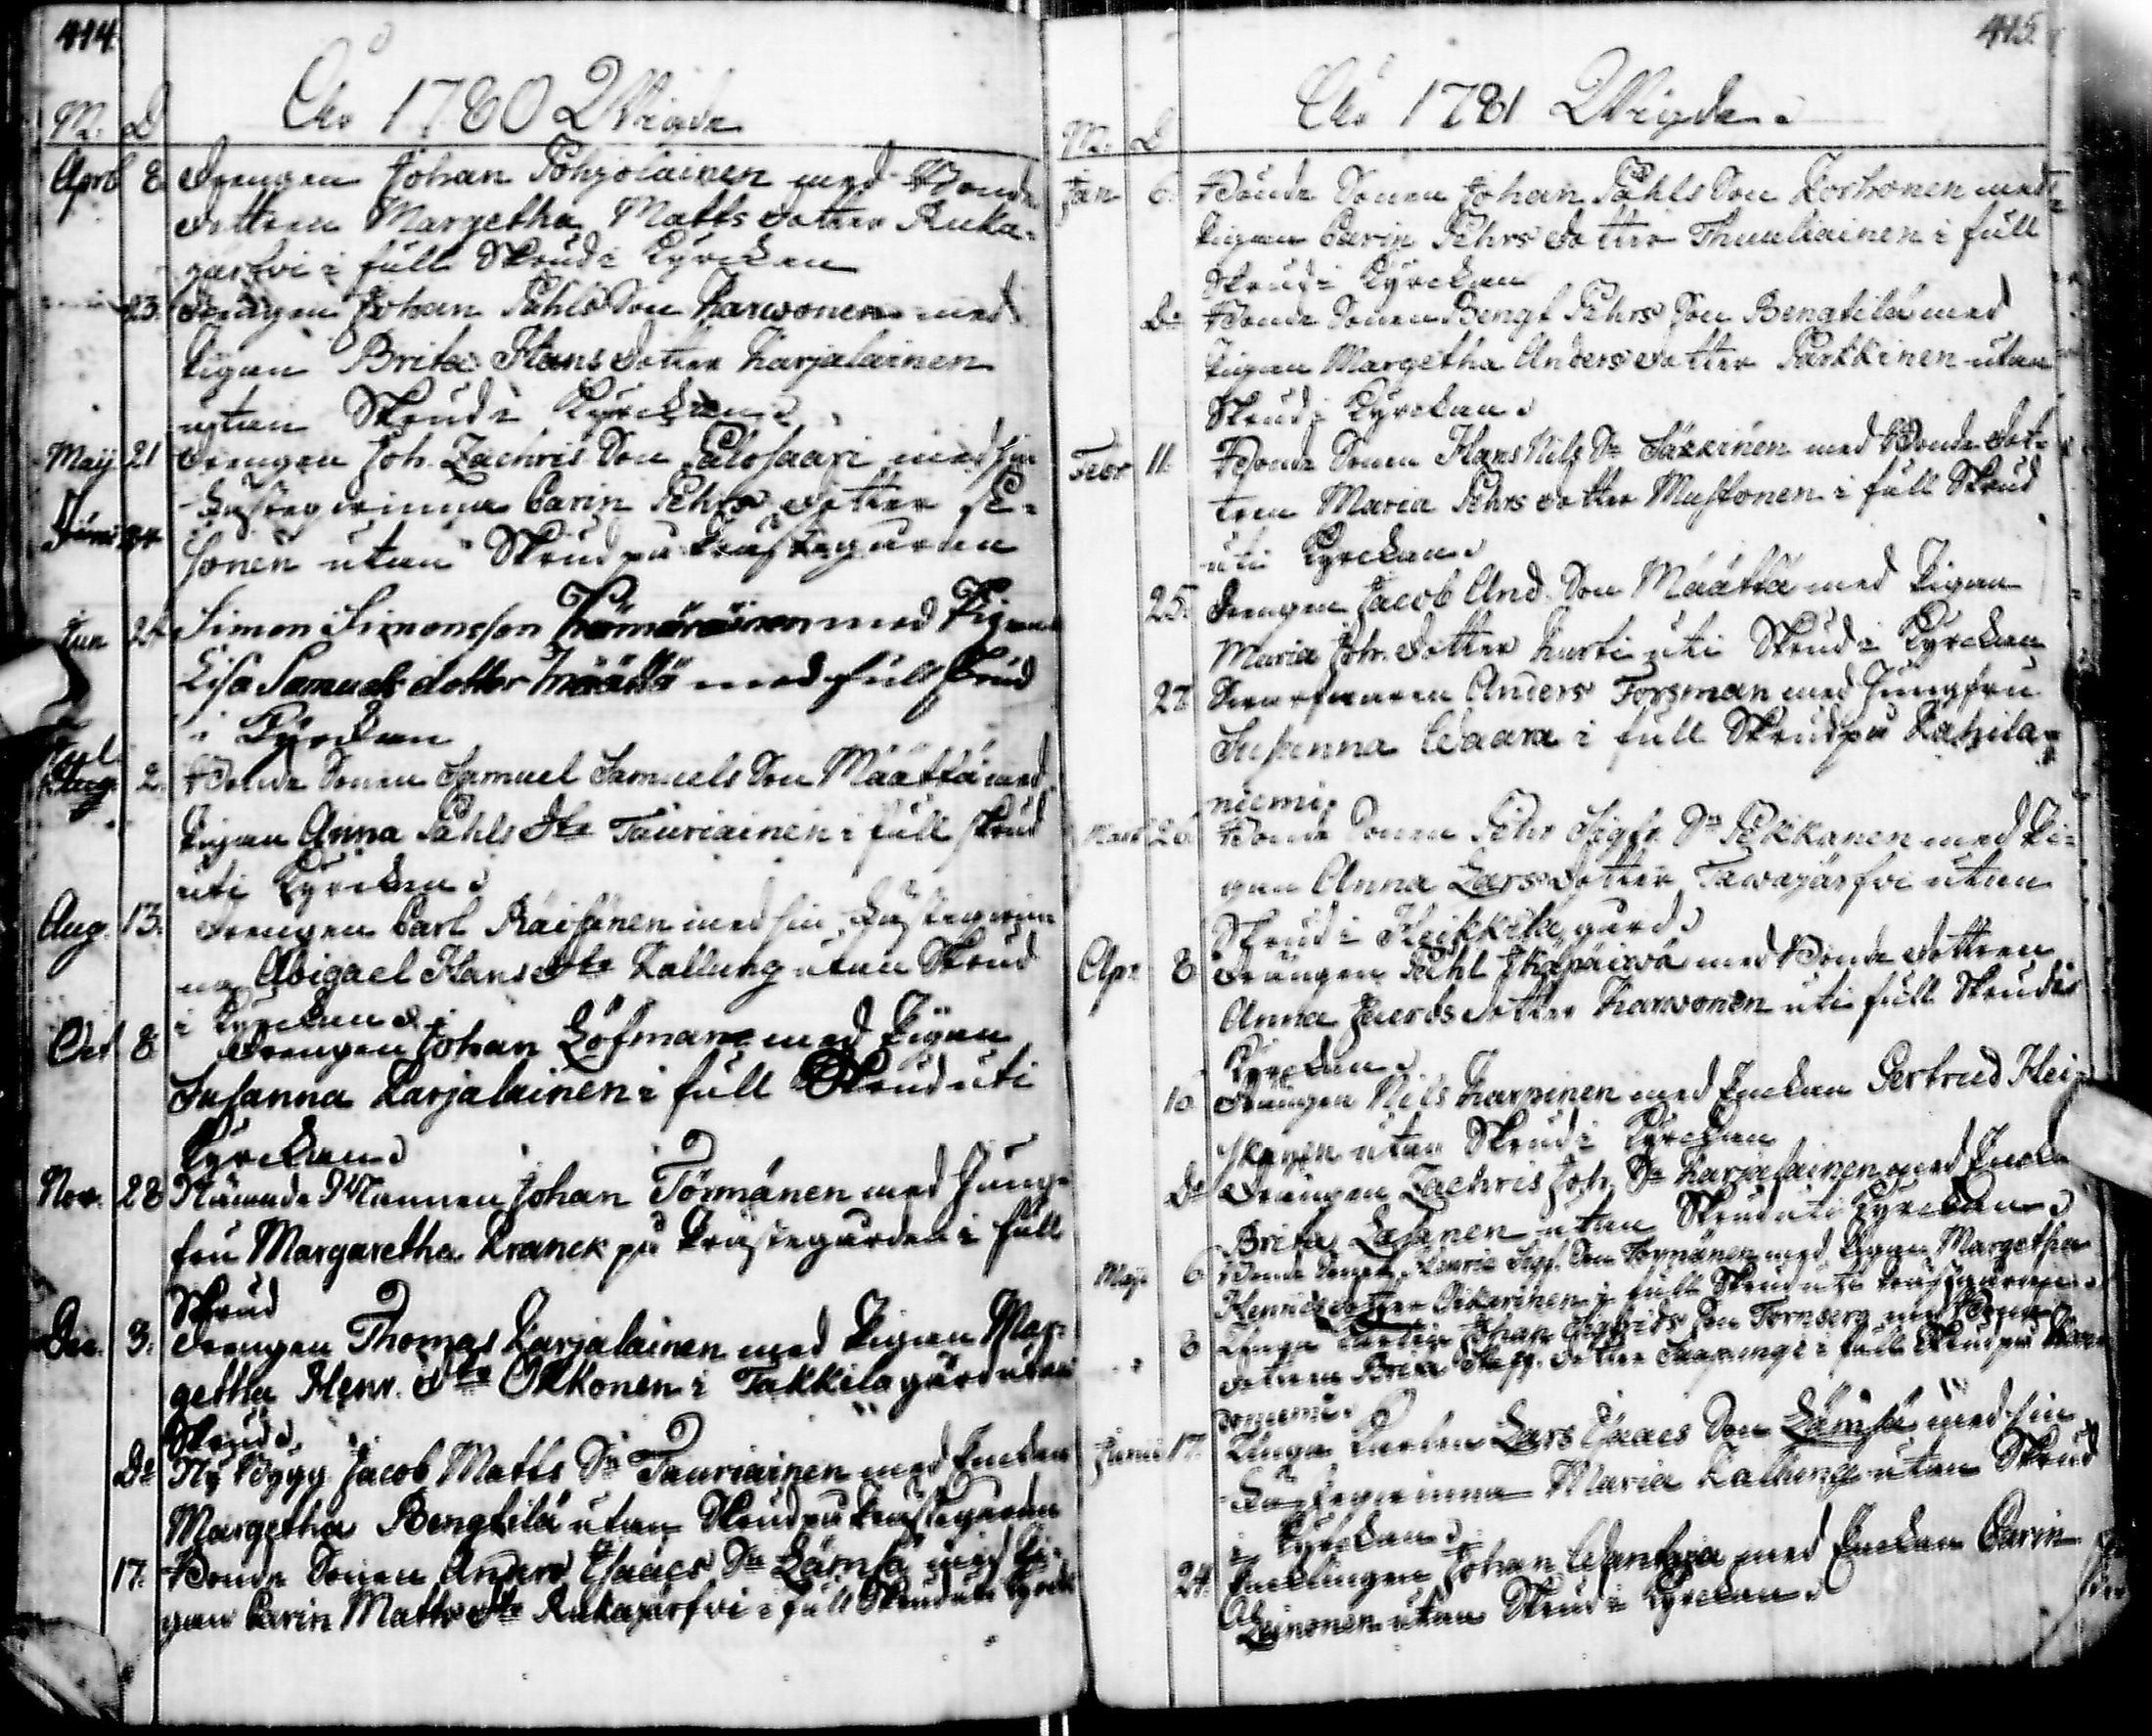 414.
Åhr 1780 Wigde
M. D
Aprl 8. Drengen Johan Pohjolainen med Bonde
dottren Margetha Matts dotter Ruka-
järfvi i full Skrud i Kyrckan
23. Drengen Johan Påhls Son Karwonen med
Pigan Brita Hans dotter Karjalainen
utan Skrud i Kyrckan
Maÿ 21 Drengen Joh. Zachris Son Palosaari med sin
Carin Pehrs dotter Le-
Juni 24
sonen utan Skrud på Prästegården
Jun 24 Simon Simonsson Kämäräinen med Pigan
Lisa Samuels dotter Määttä med full skrud
i Kyrckan
2. Bonde Sonen Samuel Samuels Son Määttä med
Pigan Anna Påhls dtr Tauriainen i full skrud
uti Kyrckan
Aug. 13. Drengen Carl Räisänen med sin
Abigael Hans dtr Kallung utan Skrud
i Kyrckan
Oct 8 Drengen Johan Löfman med Pigan
Susanna Karjalainen i full Skrud uti
Kyrckan
Nov. 28 Nämnde Mannen Johan Törmänen med Jung-
fru Margaretha Kranck på Prästegården i full
Skrud
Dec. 3. Drengen Thomas Karjalainen med Pigan Mar-
getha Henr. dtr Okkonen i Takkila gård utan
Skrud
Do Ny Bygg. Jacob Matts Sn Tauriainen med Enckan
Margetha Bengtilä utan Skrud på Prästegården
17. Bonde Sonen Anders Isaacs Sn Lämsä med Pi-
gan Carin Matts dtr Rukajärfvi i full Skrud uti Kyrck
415.
Åhr 1781 Wigde
M. D
Jan 6. Bonde Sonen Johan Påhls Son Korhonen med
Pigan Carin Pehrs dotter Thuuliainen i full
Skrud i Kyrckan
Do Bonde Sonen Bengt Pehrs Son Bengtilä med
Pigan Margetha Anders dotter Parkkinen utan
Skrud i Kyrckan
Febr 11. Bonde Sonen Hans Nils Sn Säkkinen med Bonde dot-
tren Maria Pehrs dotter Mustonen i full Skrud
uti Kyrckan
25. Drengen Jacob And. Son Määttä med Pigan
Maria Joh. dotter Kurti uti Skrud i Kyrckan
27 Anders Forsman med Jungfru
Susanna Waara i full Skrud på Kahila-
niemi
Mart 26. Bonde Sonen Pehr Sigfr. Sn Pekkanen med Pi-
gan Anna Lars dotter Tawajärfvi utan
Skrud i Heikkilä gård
Apr. 8 Drängen Påhl Ikäpäiwä med Bonde dottren
Anna dotter Karwonen uti full Skrud i
Kyrckan
10. Drängen Nils Karpinen med Enckan Gertrud Hei-
skanen utan Skrud i Kyrckan
Do Drängen Zachris Joh. Sn Karjalainen med Enckan
Brita Lesonen utan Skrud uti Kyrckan
Maÿ 6 Bonde Sonen Henric Sigf. Son Törmänen med Pigan Margetha
Henrics dotter Oikarinen i full Skrud uti Prästgården
8 Unga Karlen Johan Sigfrids Son Tornberg med Bonde
dottren Brita Staff. dotter Saarungi i full Skrud på
Junii 17. Unga Karlen Lars Isaacs Son Lämsä med sin
Maria Kallung utan Skrud
i Kyrckan
24. Enklingen Johan med Enckan Carin
Leinonen utan Skrud i Kyrckan